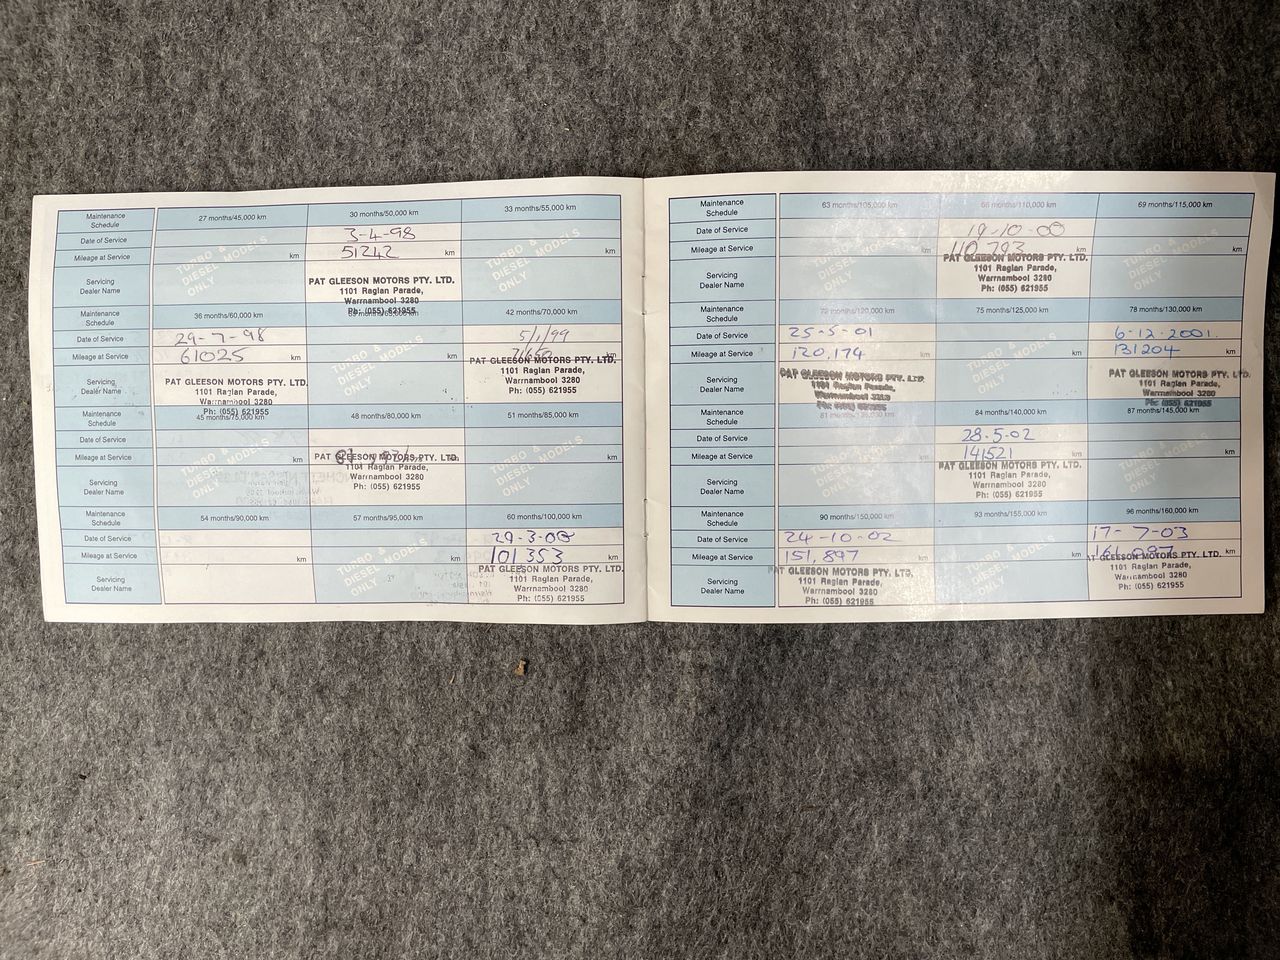 Maintenance Schedule 27 months/45,000 km 30 months/50,000 km 33 months/55,000 km
Date of Service 3-4-98
Mileage at Service km 51242 km km
TURBO & DIESEL MODELS ONLY TURBO & DIESEL MODELS ONLY
Servicing Dealer Name PAT GLEESON MOTORS PTY. LTD.
1101 Raglan Parade,
Warrnambool 3280
Ph: (055) 621955
Maintenance Schedule 36 months/60,000 km 42 months/70,000 km
Date of Service 29-7-98 5/1/99
Mileage at Service 61025 km km km
TURBO & DIESEL MODELS ONLY
Servicing Dealer Name PAT GLEESON MOTORS PTY. LTD. PAT GLEESON MOTORS PTY. LTD.
1101 Raglan Parade, 1101 Raglan Parade,
Warrnambool 3280 Warrnambool 3280
Ph: (055) 621955 Ph: (055) 621955
Maintenance Schedule 45 months/75,000 km 48 months/80,000 km 51 months/85,000 km
Date of Service
Mileage at Service km km km
TURBO & DIESEL MODELS ONLY
Servicing Dealer Name PAT GLEESON MOTORS PTY. LTD.
1101 Raglan Parade,
Warrnambool 3280
Ph: (055) 621955
Maintenance Schedule 54 months/90,000 km 57 months/95,000 km 60 months/100,000 km
Date of Service 29-3-00
Mileage at Service km km 101353 km
TURBO & DIESEL MODELS ONLY
Servicing Dealer Name PAT GLEESON MOTORS PTY. LTD.
1101 Raglan Parade,
Warrnambool 3280
Ph: (055) 621955
Maintenance Schedule 63 months/105,000 km 66 months/110,000 km 69 months/115,000 km
Date of Service 19-10-00
Mileage at Service km 110793 km km
TURBO & DIESEL MODELS ONLY TURBO & DIESEL MODELS ONLY
Servicing Dealer Name PAT GLEESON MOTORS PTY. LTD.
1101 Raglan Parade,
Warrnambool 3280
Ph: (055) 621955
Maintenance Schedule 72 months/120,000 km 75 months/125,000 km 78 months/130,000 km
Date of Service 25-5-01 6-12-2001
Mileage at Service 120,174 km km 131204 km
TURBO & DIESEL MODELS ONLY
Servicing Dealer Name PAT GLEESON MOTORS PTY. LTD. PAT GLEESON MOTORS PTY. LTD.
1101 Raglan Parade, 1101 Raglan Parade,
Warrnambool 3280 Warrnambool 3280
Ph: (055) 621955 Ph: (055) 621955
Maintenance Schedule 84 months/140,000 km 87 months/145,000 km
Date of Service 28-5-02
Mileage at Service km 141521 km km
TURBO & DIESEL MODELS ONLY TURBO & DIESEL MODELS ONLY
Servicing Dealer Name PAT GLEESON MOTORS PTY. LTD.
1101 Raglan Parade,
Warrnambool 3280
Ph: (055) 621955
Maintenance Schedule 90 months/150,000 km 93 months/155,000 km 96 months/160,000 km
Date of Service 24-10-02 17-7-03
Mileage at Service 151,897 km km km
TURBO & DIESEL MODELS ONLY
Servicing Dealer Name PAT GLEESON MOTORS PTY. LTD. AT GLEESON MOTORS PTY. LTD.
1101 Raglan Parade, 1101 Raglan Parade,
Warrnambool 3280 Warrnambool 3280
Ph: (055) 621955 Ph: (055) 621955